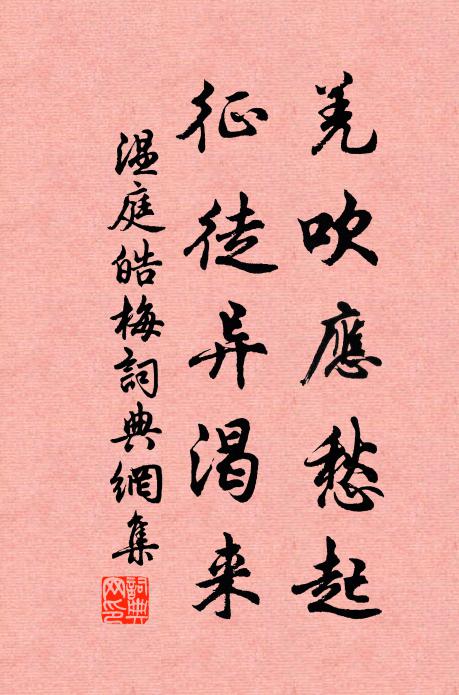 羌吹應愁起
征徒异渴来
温庭皓梅詞典網集
詞典網印